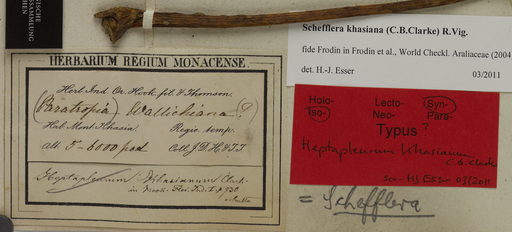 ISCHE
SSAMMLUNG
HERBARIUM REGIUM MONACENSE
Herb. Ind. Or. Hook. fil. & Thomson.
(Paratropia) Wallichiana (?)
Hab. Mont. Khasia. Regio temp.
alt. 5-6000 ped. Coll. J.D.H. & T.T.
Heptapleurum khasianum Clarke
in Hook. Flor. Ind. II p. 730
Schefflera khasiana (C.B.Clarke) R.Vig.
fide Frodin in Frodin et al., World Checkl. Araliaceae (2004
det. H.-J. Esser 03/2011
Holo- Lecto- Syn-
Iso- Neo- Para-
Typus ?
Heptapleurum khasianum
C.B. Clarke
HJ Esser 03/2011
= Schefflera